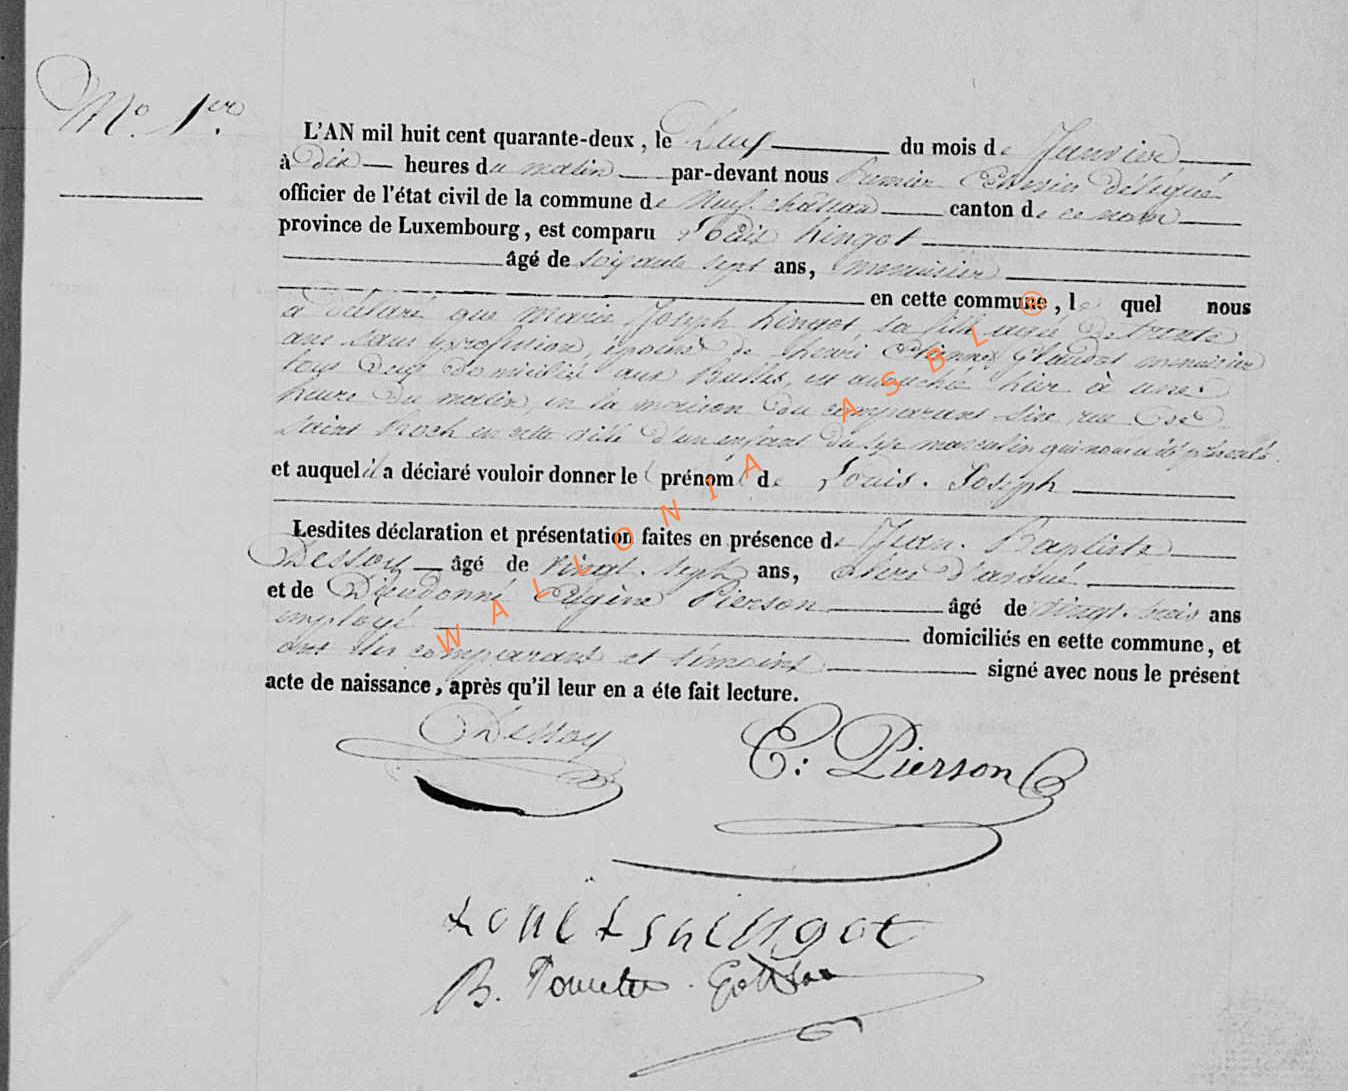 N.° 1.er
L'AN mil huit cent quarante-deux, le Deux du mois de Janvier
à Dix heures du matin par-devant nous Premier Echevin délégué
officier de l'état civil de la commune de Neufchâteau canton de ce nom
province de Luxembourg, est comparu Louis Lingot
âgé de soixante sept ans, menuisier
en cette commune, le quel nous
a déclaré que Marie Joseph Lingot, sa fille agée de trente
ans sans profession, épouse de Henri Etienne menuisier
tous deux domiciliés aux Bulles, est accouchée hier à une
heure du matin, en la maison du comparant sise rue de
Saint Roch en cette ville d'un enfant du sexe masculin qui nous a été présenté
et auquel il a déclaré vouloir donner le prénom de Louis. Joseph
Lesdites déclaration et présentation faites en présence de Jean. Baptiste
Dessoy âgé de vingt. sept ans, clerc d'avoué
et de Dieudonné Eugène Pierson âgé de vingt. trois ans
employé domiciliés en cette commune, et
ont les comparant et témoins signé avec nous le présent
acte de naissance, après qu'il leur en a éte fait lecture.
Dessoy
E: Pierson
B.
WALLONIA ASBL®